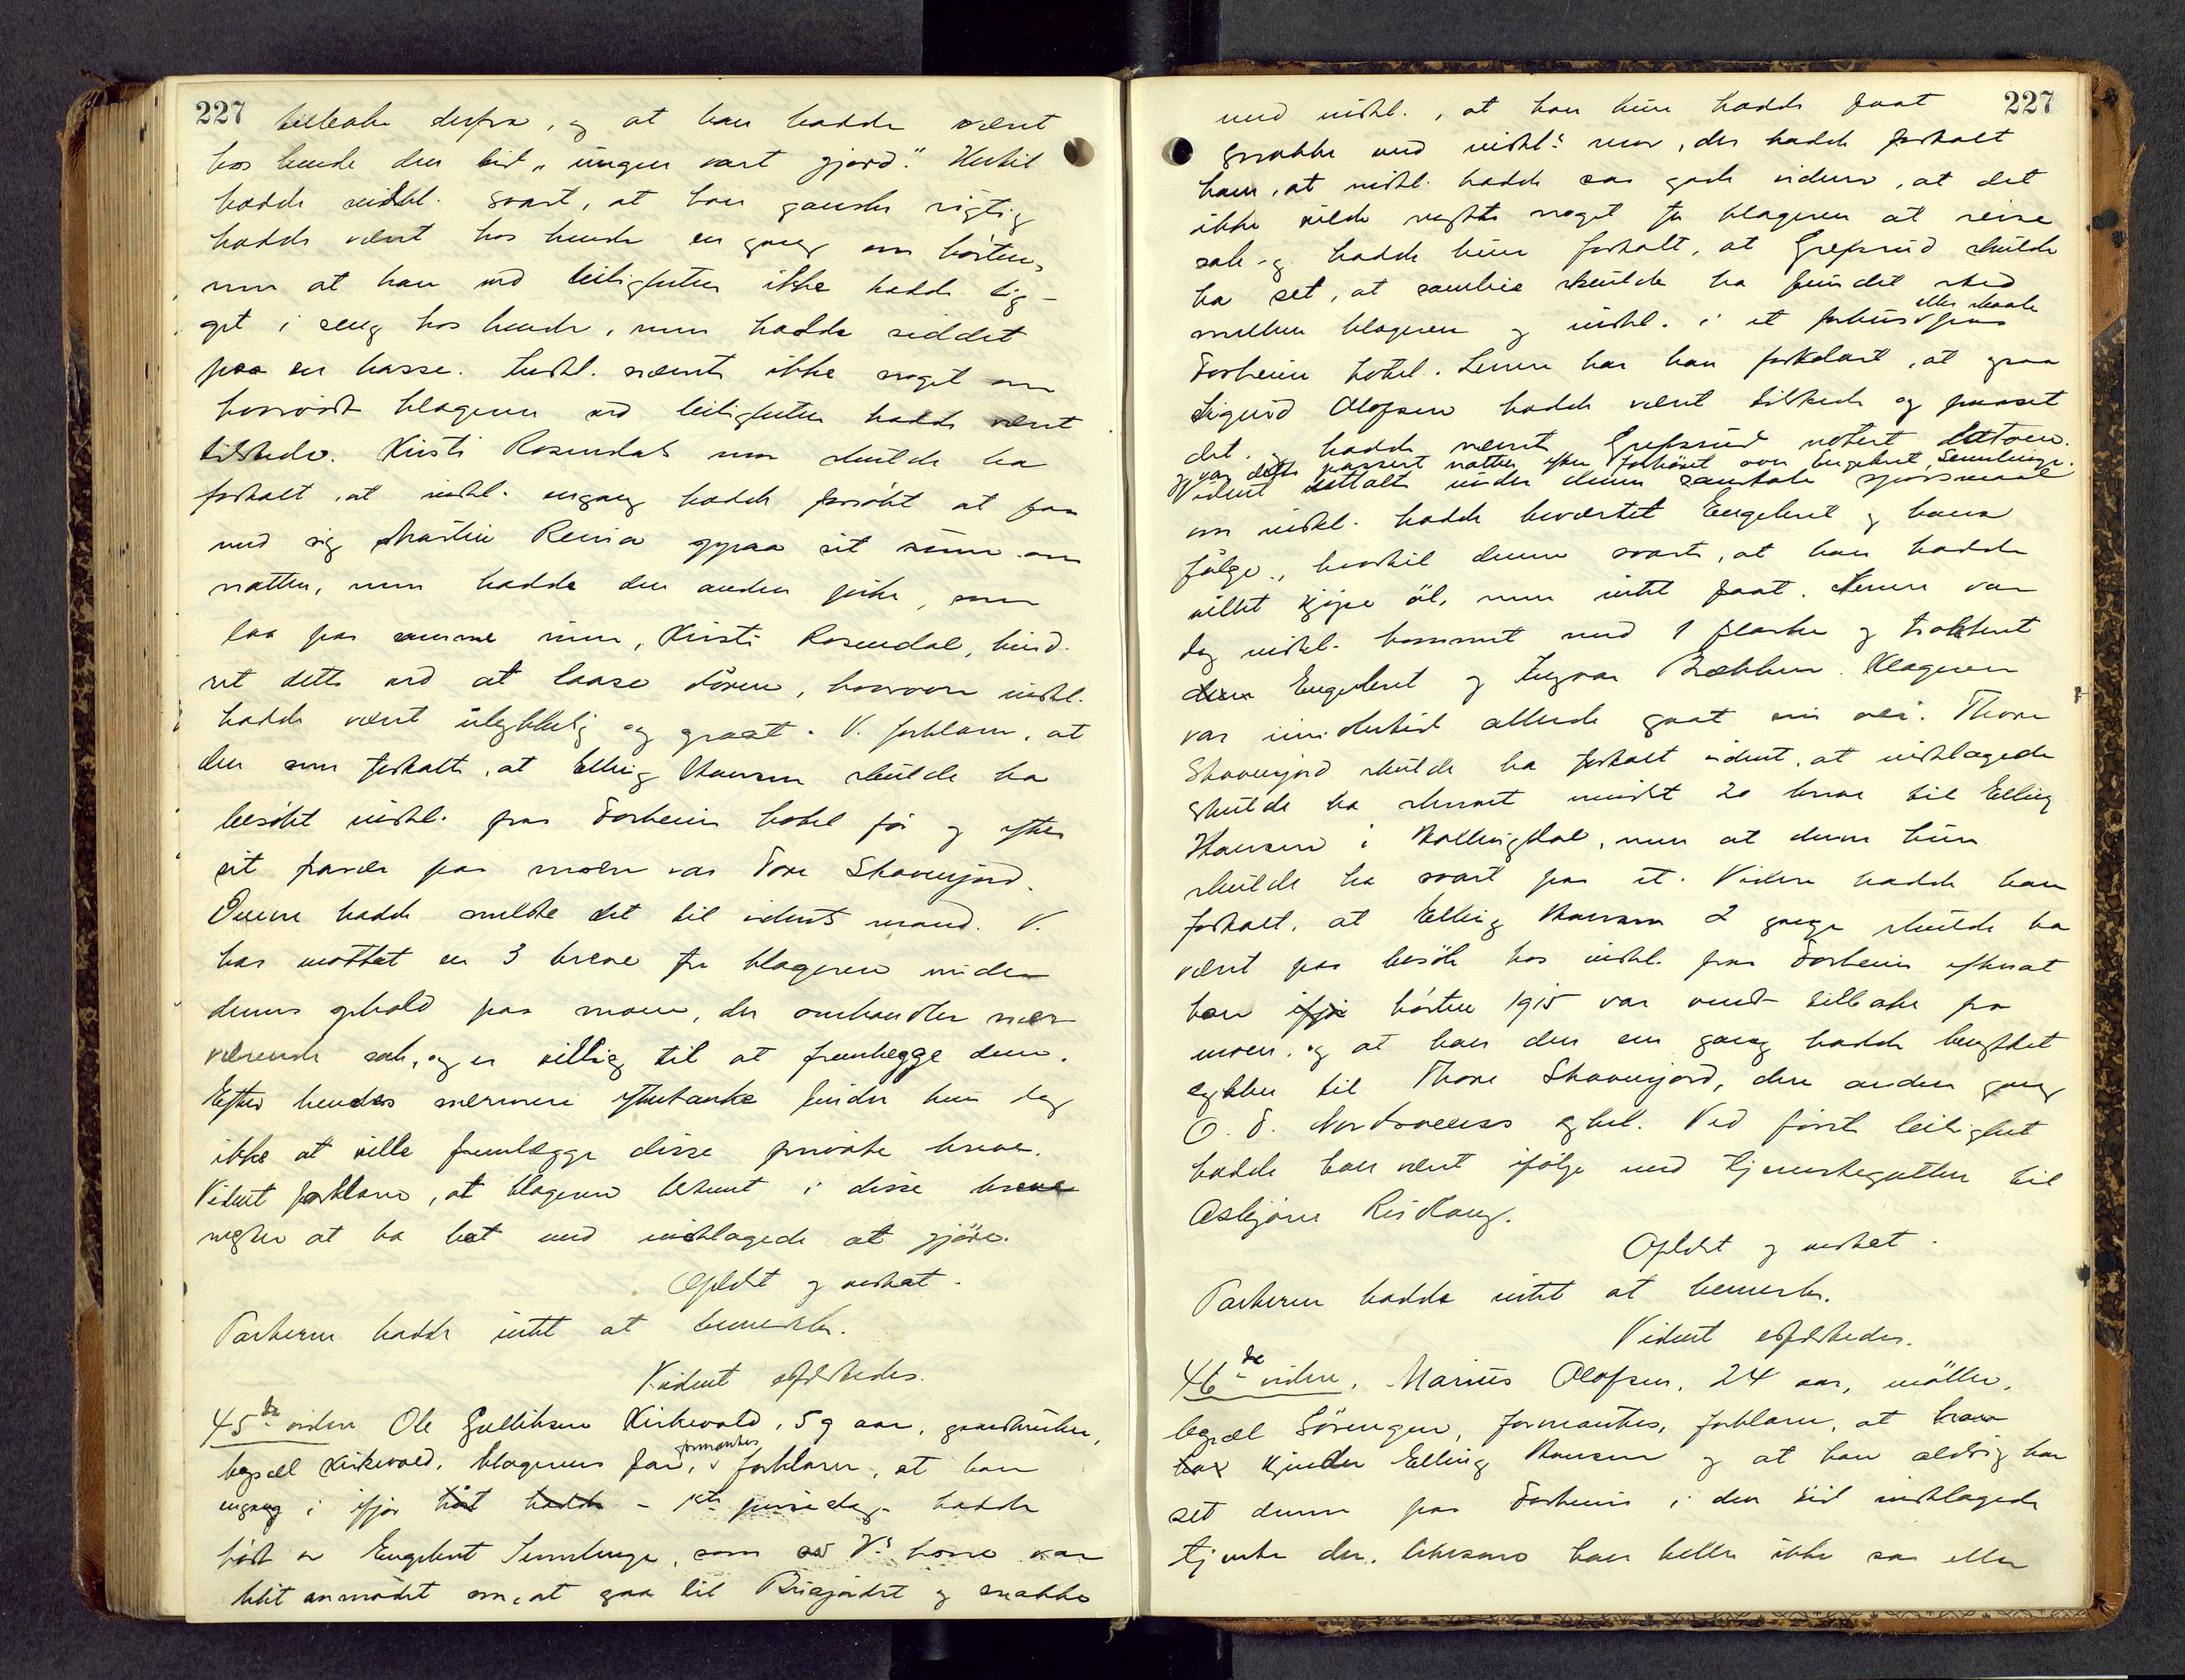 227
tilbake derfra, og at han hadde været
hos hende den tid "ungen vart gjord." Hertil
hadde indkl. svart, at han ganske rigtig
hadde været hos hende en gang om høsten,
men at han ved leiligheten ikke hadde lig-
get i seng hos hende, men hadde siddet
paa en kasse. Indkl. nævnte ikke noget om
hvorvidt klageren ved leiligheten hadde været
tilstede. Kirsti Rosendal som skulde ha
fortalt, at indkl. engang hadde forsøkt at faa
med sig Martin op paa sit rum om
natten, men hadde den anden pike, som
laa paa samme rum, Kirsti Rosendal, hind-
ret dette ved at laase døren, hvorover indkl.
hadde været ulykkelig og graatt. V. forklarer, at
den som fortalte, at Elling Hansen skulde ha
besøkt indkl. paa Forheim hotel før og efter
sit paa moen var Tore Skavenjord.
Denne hadde meldt det til vidnets mand. V.
har mottat en 3 breve fra klageren under
dennes ophold paa moen, der omhandler nær
værende sak, og er villig til at fremlegge dem.
Efter hendes nærmere eftertanke finder hun dog
ikke at ville fremlægge disse private breve.
Vidnet forklarer, at klageren bestemt i disse breve
negter at ha hat med indklagede at gjøre.
Oplæst og vedtat.
Parterne hadde intet at bemerke.
Vidnet afskediges.
45de vidne Ole Gulliksen Kirkevold, 59 aar, gaardbruker,
bopæl Kirkevold, klagerens far, formanes
forklarer, at han
engang i ifjor høst hadde - 1ste juledag - hadde
hørt av Engebret Semelenge, som av V's kone var
blit anmodet om, at gaa til og snakke
227
med indkl., at han kun hadde faat
snakke med indkl's mor, der hadde fortalt
ham, at indkl. hadde saa gode vidner, at det
ikke vilde nytte noget for klageren at reise
sak og hadde hun fortalt, at Grefsrud skulde
ha set, at samleie skulde ha fundet sted
eller skaale
mellem klageren og indkl. i et forhus paa
Forheim hotel. Senere har han forklart, at
Sigurd Olofsen hadde været tilstede og passet
det. og hadde nævnte Grefsrud notert datoen.
var dette passert natten efter forhøret over Engebret Semelenge.
Vidnet stillet under denne samtale spørsmaal
om indkl. hadde bevertet Engebret og hans
følge, hvortil denne svarte, at han hadde
villet kjøpe øl, men intet faat. Senere var
dog indkl. kommet med 1 flaske og traktert
dem Engebret og Ingvar Bækken. Klageren
var imidlertid allerede gaat sin vei. Thore
Skavenjord skulde ha fortalt vidnet, at indklagede
skulde ha skrevet mindst 20 breve til Elling
Hansen i Hallingdal, men at denne kun
skulde ha svart paa et. Videre hadde han
fortalt, at Elling Hansen 2 gange skulde ha
været paa besøk hos indkl. paa Forheim efterat
han ifjor høsten 1915 var vendt tilbake fra
moen, og at han den ene gang hadde benyttet
sykkel til Thore Skavenjord, den anden gang
O. S. Nordsveens sykkel. Ved første leilighet
hadde han været ifølge med tjenestegutten til
Asbjørn Rishaug.
Oplæst og vedtat.
Parterne hadde intet at bemerke.
Vidnet afskediges.
46de vidne, Marius Olofsen, 24 aar, møller,
bopæl Sørengen, formantes, forklarer, at han
har kjender Elling Hansen og at han aldrig har
set denne paa Forheim i den tid indklagede
tjente der. han heller ikke saa eller